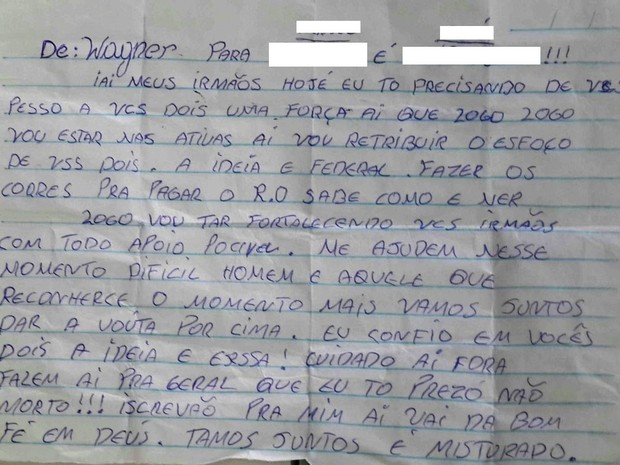 De: Wagner. PARA É !!!
IAI MEUS IRMÃOS HOJÉ EU TO PRECISANDO DE VCS
PESSO A VCS DOIS UMA FORÇA AI QUE 2060 2060
VOU ESTAR NAS ATIVAS AÍ VOU RETRIBUIR O ESFOÇO
DE VSS DOIS. A IDEIA E FEDERAL. FAZER OS
CORRES PRA PAGAR O R.O SABE COMO E NER
2060 VOU TAR FORTALECENDO VCS IRMÃOS
COM TODO APOIO POCIVEL. ME AJUDEM NESSE
MOMENTO DIFICIL HOMEM E AQUELE QUE
RECONHERCE O MOMENTO MAIS VAMOS JUNTOS
DAR A VOUTA POR CIMA. EU CONFIO EM VOCÊS
DOIS A IDEIA E ERSSA! CUIDADO AI FORA
FAZEM AI PRA GERAL QUE EU TO PREZO NÃO
MORTO!!! ISCREVÃO PRA MIM AI VAI DA BOM
FÉ EM DEUS. TAMOS JUNTOS E MISTURADO.